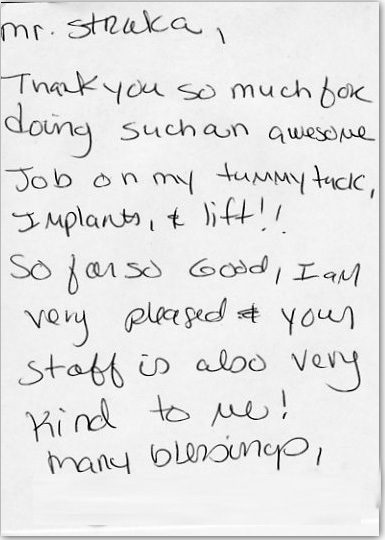 mr. Struka,
Thank you so much for
doing such an awesome
Job on my tummy tuck,
Implants, & lift!!
So far so Good, I am
very pleased & your
staff is also very
kind to me!
many blessings,